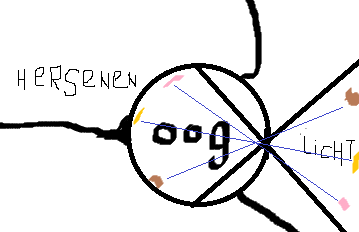 HERSENEN
oog
LICHT